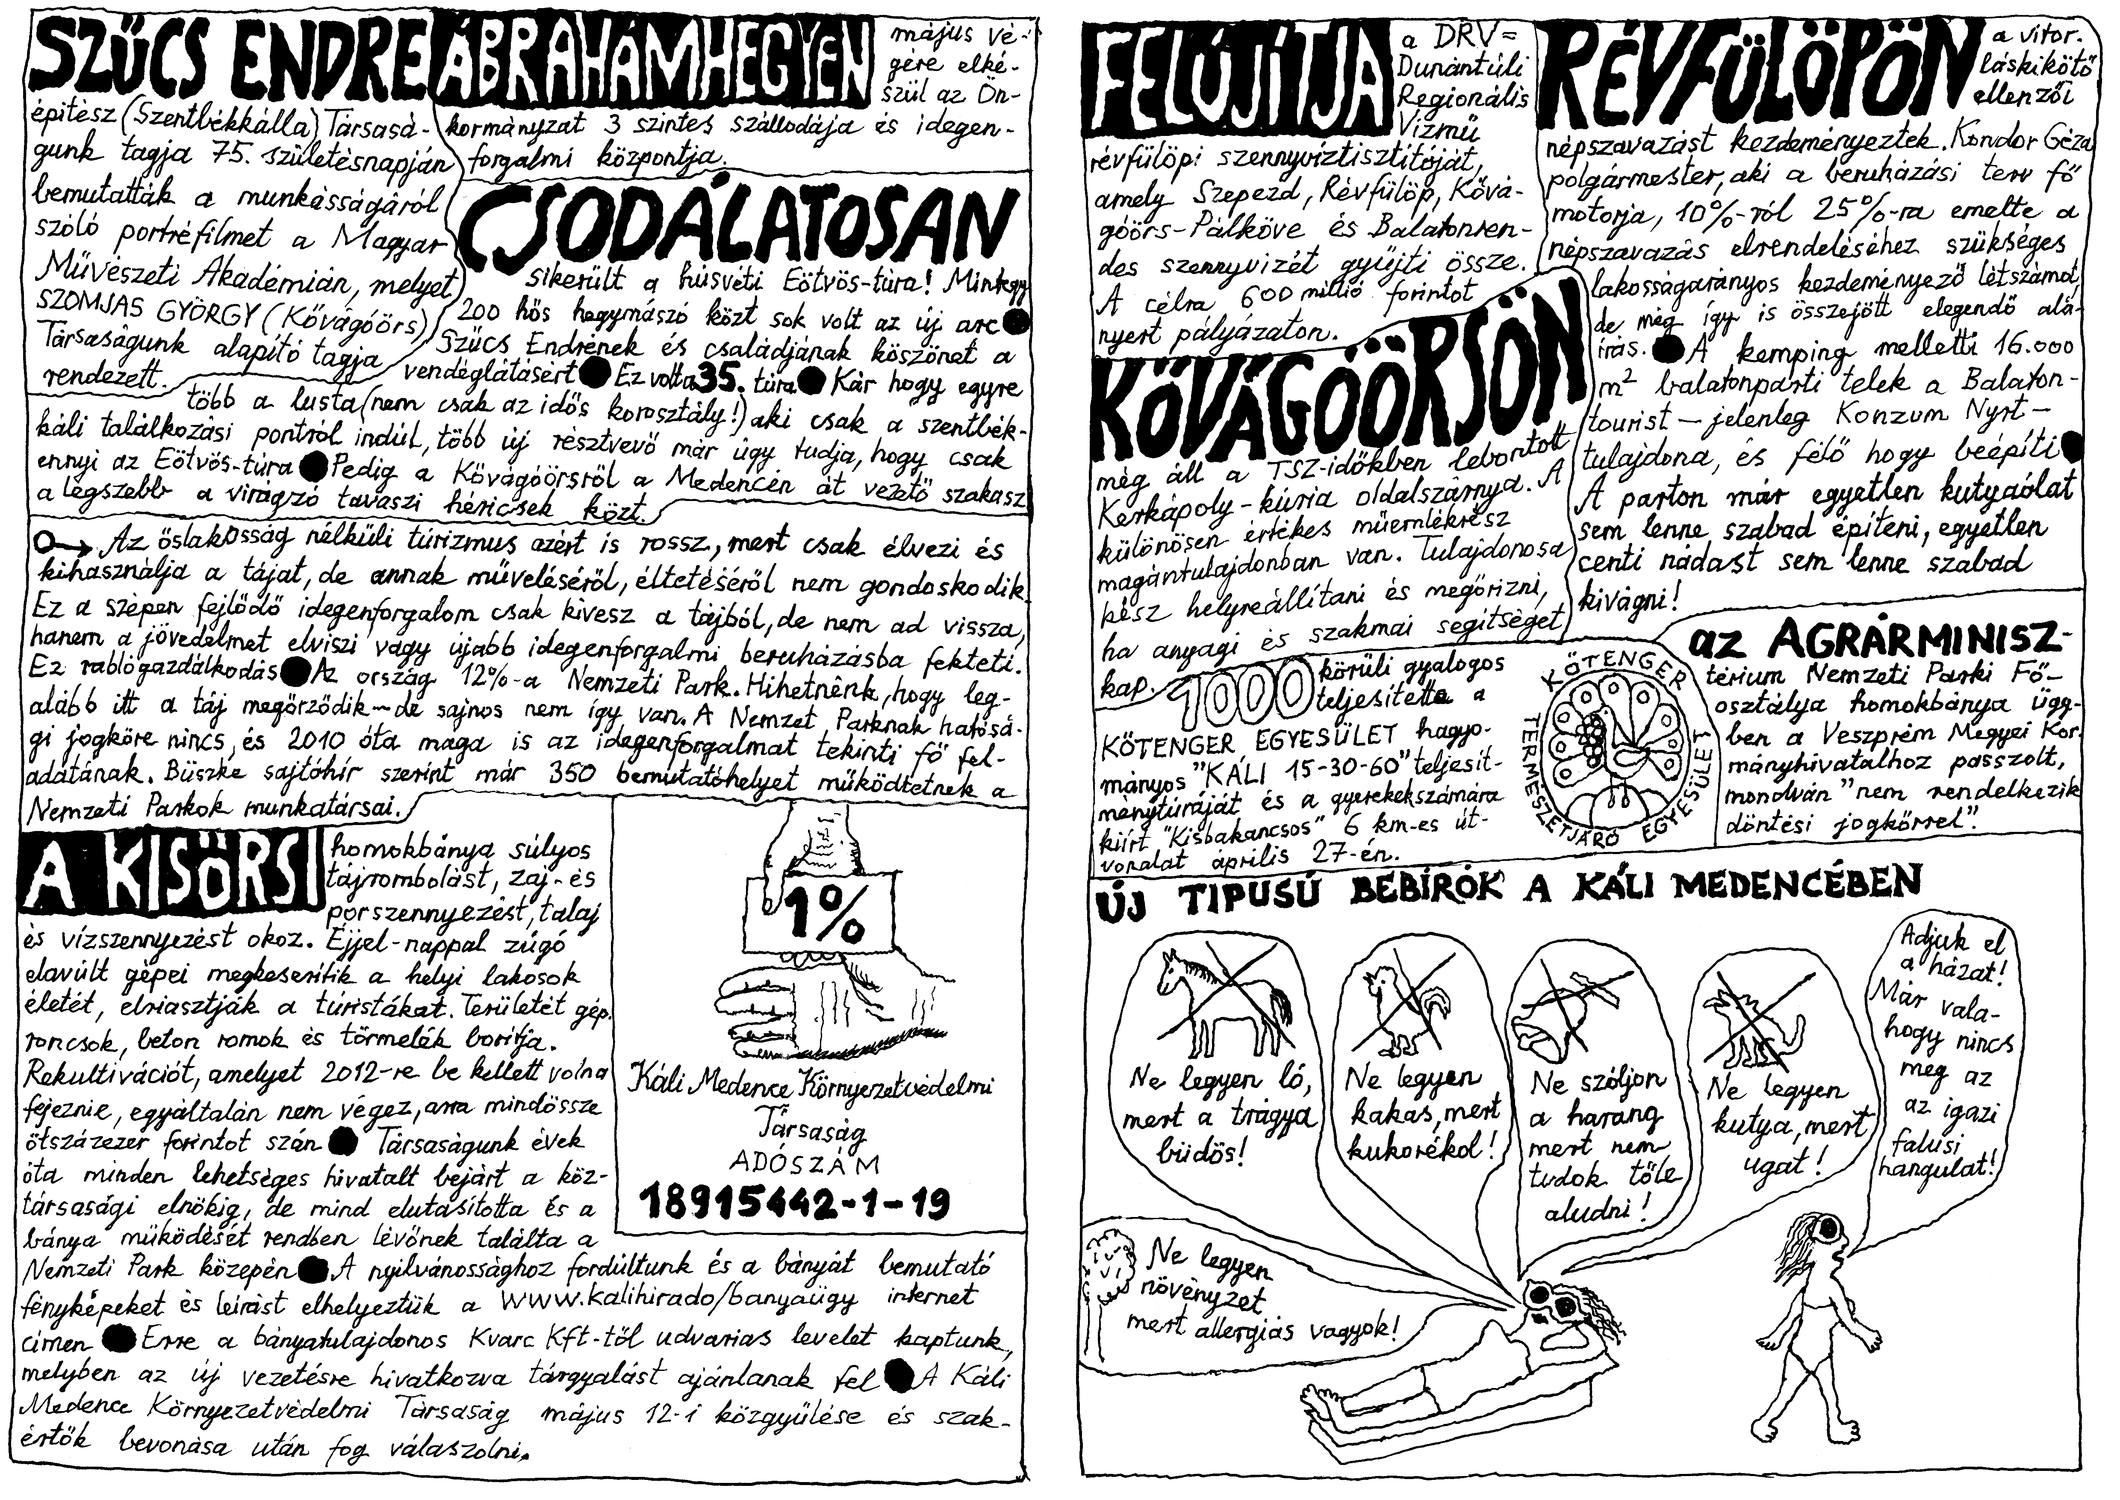 SZŰCS ENDRE
építész (Szentbékkálla) Társasá-
gunk tagja 75. születésnapján
bemutatták a munkásságáról
szóló portréfilmet a Magyar
Művészeti Akadémián, melyet
SZOMJAS GYÖRGY (Kővágóörs)
Társaságunk alapító tagja
rendezett.
ÁBRAHÁMHEGYEN
május vé-
gére elké-
szül az Ön-
kormányzat 3 szintes szállodája és idegen-
forgalmi központja.
CSODÁLATOSAN
sikerült a húsvéti Eötvös-túra! Mintegy
200 hős hegymászó közt sok volt az új arc ●
Szűcs Endrének és családjának köszönet a
vendéglátásért ● Ez volt a 35. túra ● Kár hogy egyre
több a lusta (nem csak az idős korosztály!) aki csak a szentbék-
káli találkozási pontról indul, több új résztvevő már úgy tudja, hogy csak
ennyi az Eötvös-túra ● Pedig a Kővágóörsről a Medencén át vezető szakasz
a legszebb a virágzó tavaszi héricsek közt.
Az őslakosság nélküli túrizmus azért is rossz, mert csak élvezi és
kihasználja a tájat, de annak műveléséről, éltetéséről nem gondoskodik.
Ez a szépen fejlődő idegenforgalom csak kivesz a tájból, de nem ad vissza,
hanem a jövedelmet elviszi vagy újabb idegenforgalmi beruházásba fekteti.
Ez rablógazdálkodás ● Az ország 12%-a Nemzeti Park. Hihetnénk, hogy leg-
alább itt a táj megőrződik – de sajnos nem így van. A Nemzet Parknak hatósá-
gi jogköre nincs, és 2010 óta maga is az idegenforgalmat tekinti fő fel-
adatának. Büszke sajtóhír szerint már 350 bemutatóhelyet működtetnek a
Nemzeti Parkok munkatársai.
A KISÖRSI
homokbánya súlyos
tájrombolást, zaj- és
porszennyezést, talaj
és vízszennyezést okoz. Éjjel-nappal zúgó
elavúlt gépei megkeserítik a helyi lakosok
életét, elriasztják a túristákat. Területét gép.
roncsok, beton romok és törmelék borítja.
Rekultivációt, amelyet 2012-re be kellett volna
fejeznie, egyáltalán nem végez, arra mindössze
ötszázezer forintot szán ● Társaságunk évek
óta minden lehetséges hivatalt bejárt a köz-
társasági elnökig, de mind elutasította és a
bánya működését rendben lévőnek találta a
Nemzeti Park közepén ● A nyilvánossághoz fordúltunk és a bányát bemutató
fényképeket és leírást elhelyeztük a www.kalihirado/banyaügy internet
címen ● Erre a bányatulajdonos Kvarc Kft-től udvarias levelet kaptunk,
melyben az új vezetésre hivatkozva tárgyalást ajánlanak fel ● A Káli
Medence Környezetvédelmi Társaság május 12-i közgyűlése és szak-
értők bevonása után fog válaszolni.
1%
Káli Medence Környezetvédelmi
Társaság
ADÓSZÁM
18915442-1-19
FELÚJÍTJA
a DRV=
Dunántúli
Regionális
Vízmű
révfülöpi szennyvíztisztítóját,
amely Szepezd, Révfülöp, Kővá-
góörs-Pálköve és Balatonren-
des szennyvizét gyűjti össze.
A célra 600 millió forintot
nyert pályázaton.
RÉVFÜLÖPÖN
a vitor.
láskikötő
ellenzői
népszavazást kezdeményeztek. Kondor Géza
polgármester, aki a beruházási terv fő
motorja, 10%-ról 25%-ra emelte a
népszavazás elrendeléséhez szükséges
lakosságarányos kezdeményező létszámot,
de még így is összejött elegendő alá-
írás. ● A kemping melletti 16.000
m² balatonparti telek a Balaton-
tourist – jelenleg Konzum Nyrt –
tulajdona, és félő hogy beépíti ●
A parton már egyetlen kutyaólat
sem lenne szabad építeni, egyetlen
centi nádast sem lenne szabad
kivágni!
KŐVÁGÓÖRSÖN
még áll a TSZ-időkben lebontott
Kerkápoly-kúria oldalszárnya. A
különösen értékes műemlékrész
magántulajdonban van. Tulajdonosa
kész helyreállítani és megőrizni,
ha anyagi és szakmai segítséget
kap.
1000 körüli gyalogos
teljesítette a
KŐTENGER EGYESÜLET hagyo-
mányos "KÁLI 15-30-60" teljesít-
ménytúráját és a gyerekek számára
kiírt "Kisbakancsos" 6 km-es út-
vonalat április 27-én.
KŐTENGER
TERMÉSZETJÁRÓ EGYESÜLET
az AGRÁRMINISZ-
térium Nemzeti Parki Fő-
osztálya homokbánya ügy-
ben a Veszprém Megyei Kor.
mányhivatalhoz passzolt,
mondván "nem rendelkezik
döntési jogkörrel".
ÚJ TIPUSÚ BEBÍRÓK A KÁLI MEDENCÉBEN
Ne legyen ló,
mert a trágya
büdös!
Ne legyen
kakas, mert
kukorékol!
Ne szóljon
a harang
mert nem
tudok tőle
aludni!
Ne legyen
kutya, mert
ugat!
Adjuk el
a házat!
Már vala-
hogy nincs
meg az
az igazi
falusi
hangulat!
Ne legyen
növényzet
mert allergiás vagyok!